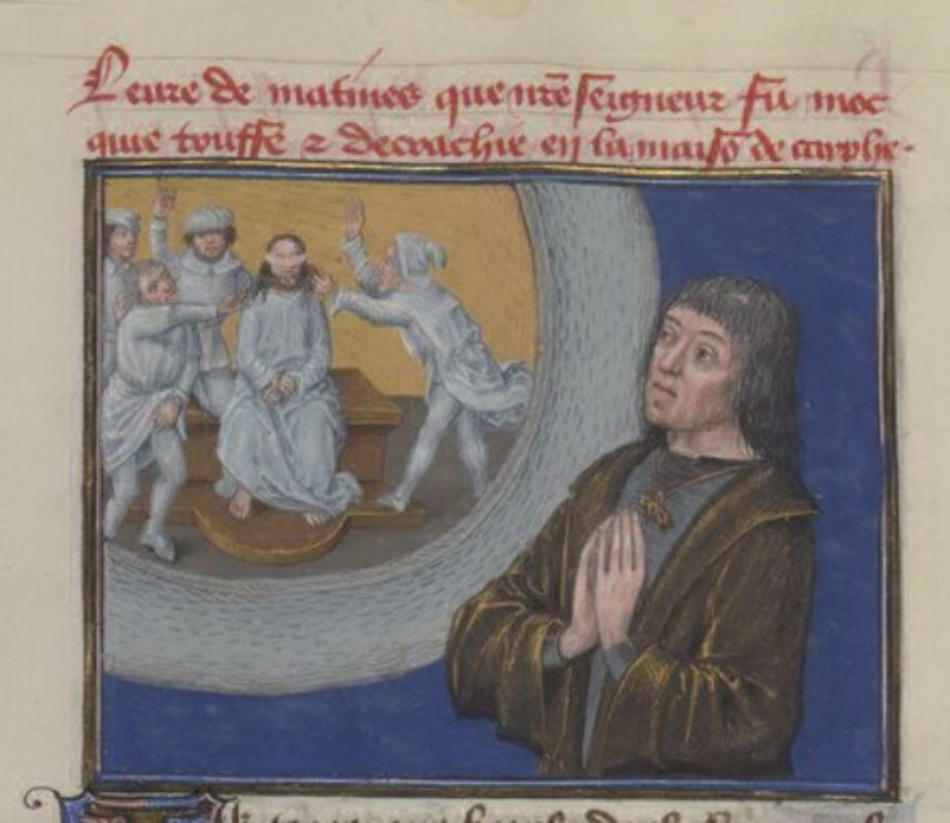 Leure de matines que nrē seigneur fu moc
que touffe ⁊ decrachie en la maisō de cayphe.